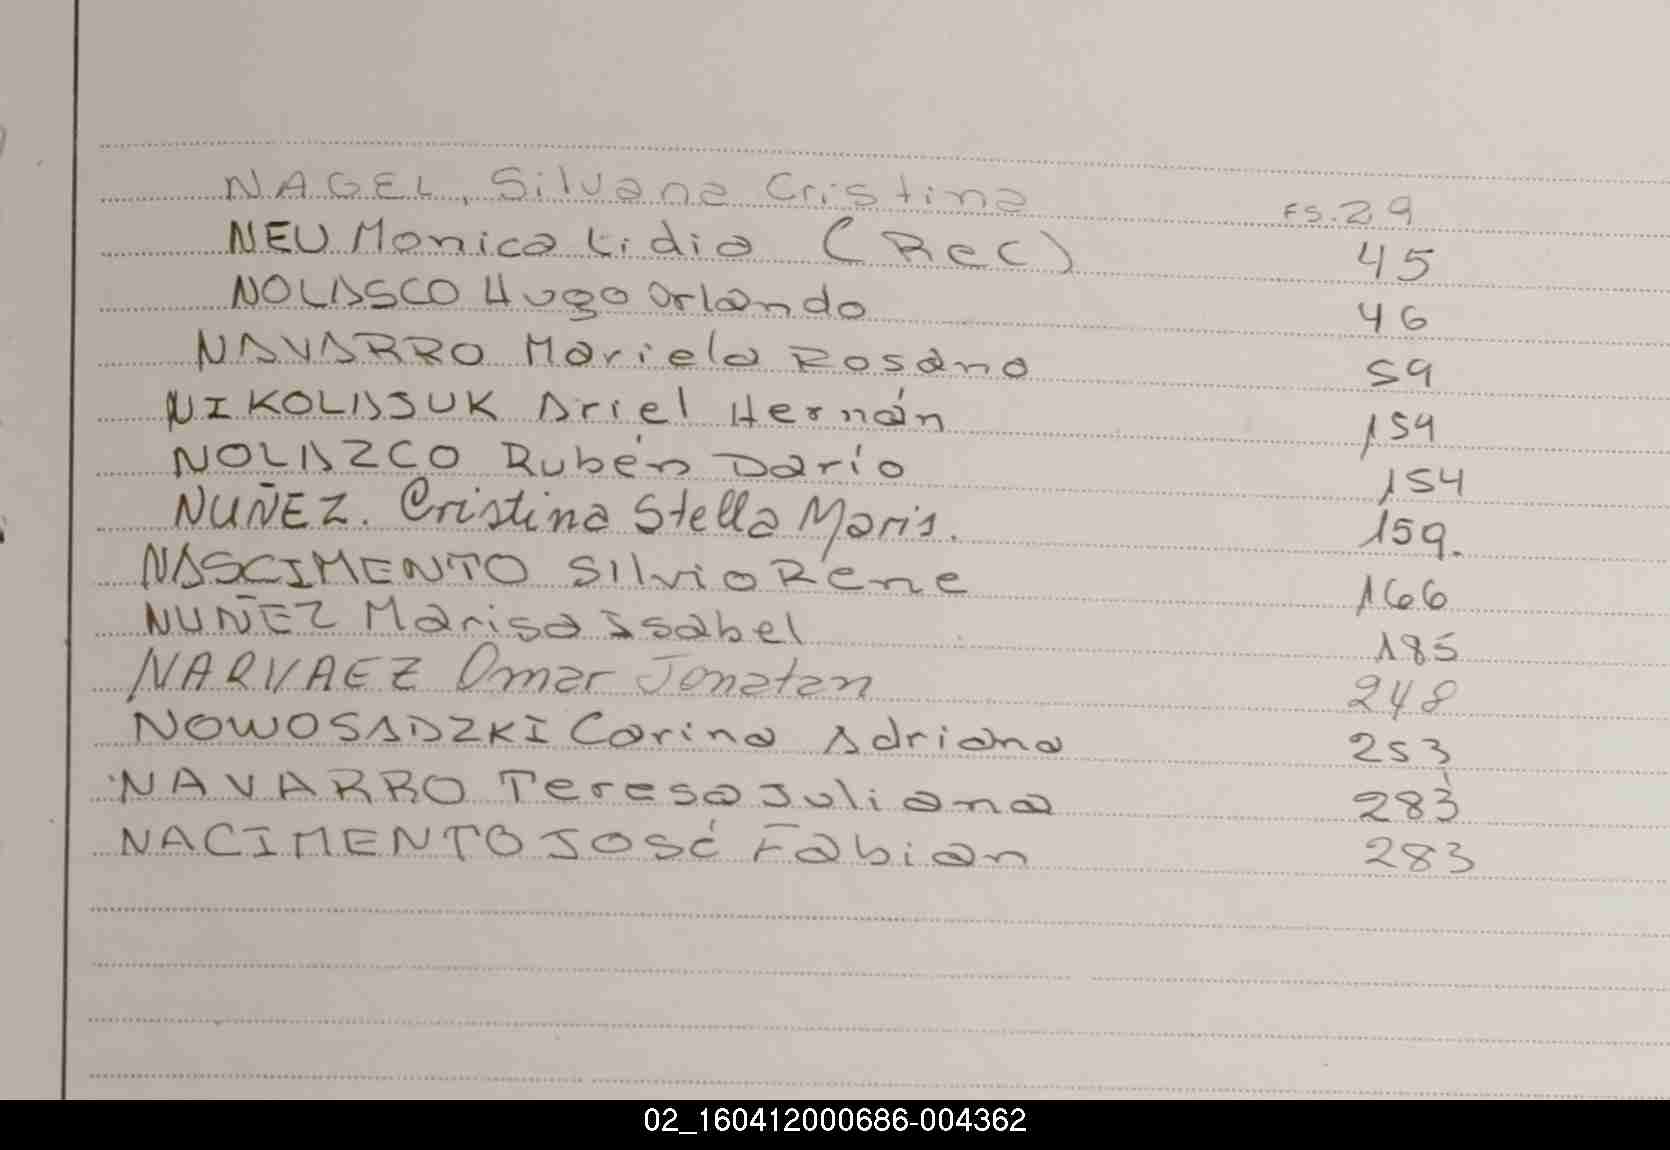 NAGEL, Silvana Cristina FS. 29
NEU Monica Lidia (Rec) 45
NOLASCO Hugo Orlando 46
NAVARRO Mariela Rosana 59
NIKOLAJUK Ariel Hernán 154
NOLAZCO Rubén Darío 154
NUÑEZ. Cristina Stella Maris. 159.
NASCIMENTO Silvio Rene 166
NUÑEZ Marisa Isabel 185
NARVAEZ Omar Jonatan 248
NOWOSADZKI Carina Adriana 253
NAVARRO Teresa Juliana 283
NACIMENTO José Fabian 283
02_160412000686-004362